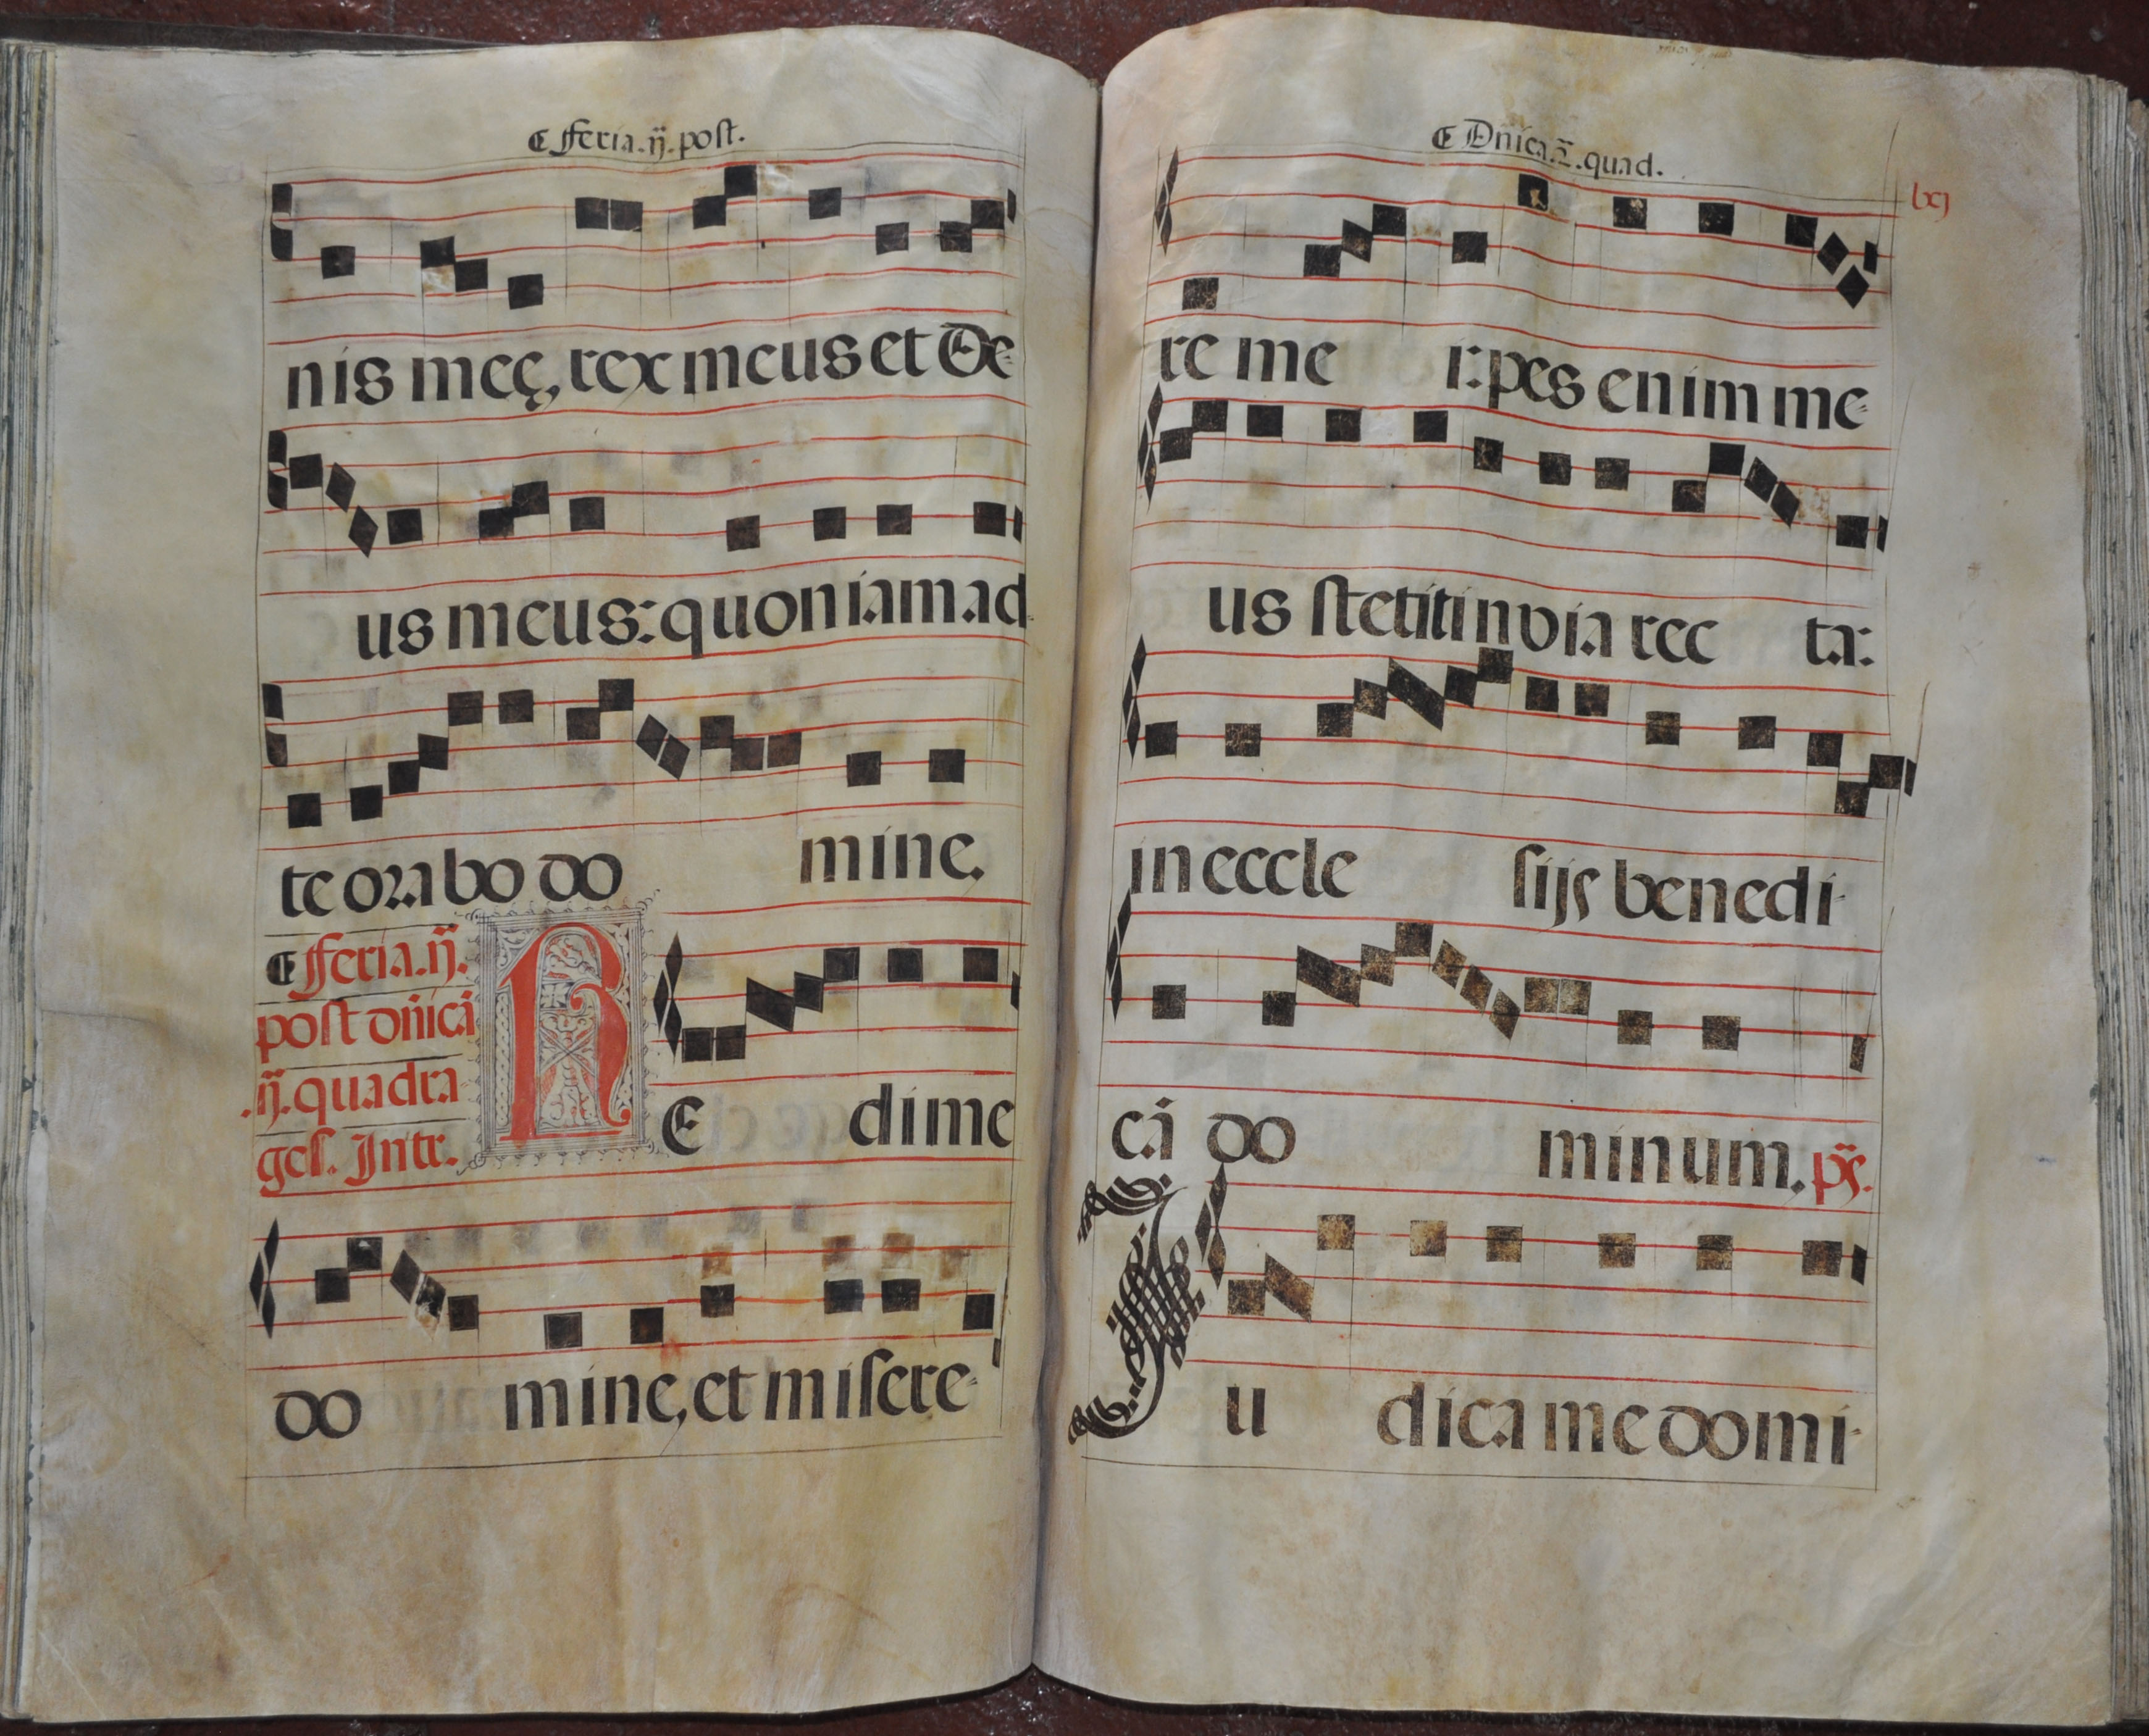 Feria.ij.post.
nis meę, rex meus et De-
us meus: quoniam ad
te orabo do mine.
Feria.ij.
post dn̄icā
.ij. quadra-
ges. Intr.
RE dime
do mine, et misere-
Dn̄ica.ij.quad.
lxj
re me i: pes enim me-
us stetit in via rec ta:
in eccle sijs benedi-
cā do minum. ps.
Iu dica me domi-